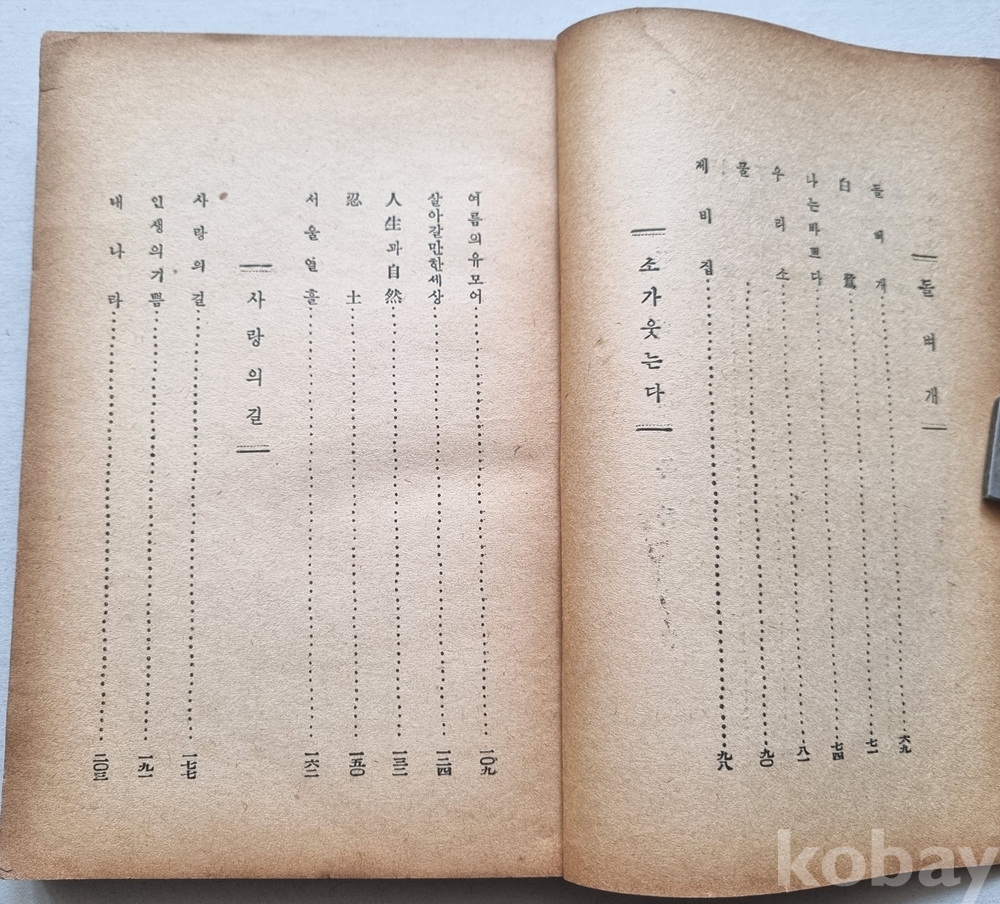 돌벼개
돌벼개 六九
白鷺 七二
나는바쁘다 七四
우리소 八一
물 九〇
제비집 九八
소가웃는다
여름의유모어 一〇九
살아갈만한세상 一二四
人生과自然 一三二
忍土 一五〇
서울열흘 一六二
사랑의길
사랑의길 一七七
인생의기쁨 一九一
내나라 二〇三
kobay